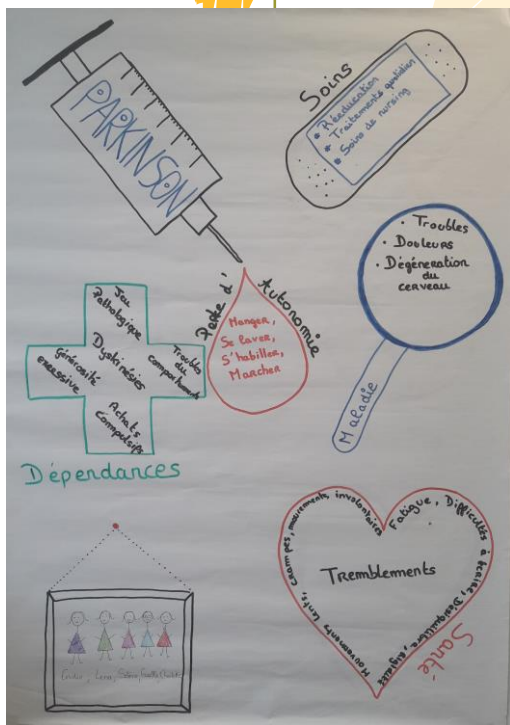 PARKINSON
Soins
• Rééducation
• Traitements quotidien
• Soins de nursing
• Troubles
• Douleurs
• Dégéneration
du
cerveau
Maladie
Perte d'
Autonomie
Manger,
Se laver,
S'habiller,
Marcher
Jeu
Pathologique
Générosité
excessive
Dyskinésies
Troubles
du
comportement
Achats
Compulsifs
Dépendances
Tremblements
Mouvements lents, crampes, mouvements involontaires
Fatigue, Difficultés à écrire, Déséquilibre, Rigidité
Santé